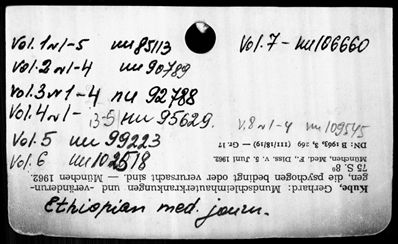 Vol. 1 N1-5 nu 85113
Vol. 7 - nu 106660
Vol. 2 N1-4 nu 90789
Vol. 3 N1-4 nu 92788
Vol. 4 N1-
3-5) nu 95629.
V. 8 N1-4 nu 109545
Vol. 5 nu 99223
Vol. 6 nu 102518
Ethiopian med. journ.
Kube, Gerhard: Mundschleimhauterkrankungen und -veränderun-
gen, die psychogen bedingt oder verursacht sind. — München 1962.
75 S. 8°
München, Med. F., Diss. v. 2. Juni 1962
DN: B 1963, 3, 269 (111/18/19) — Gr. 17